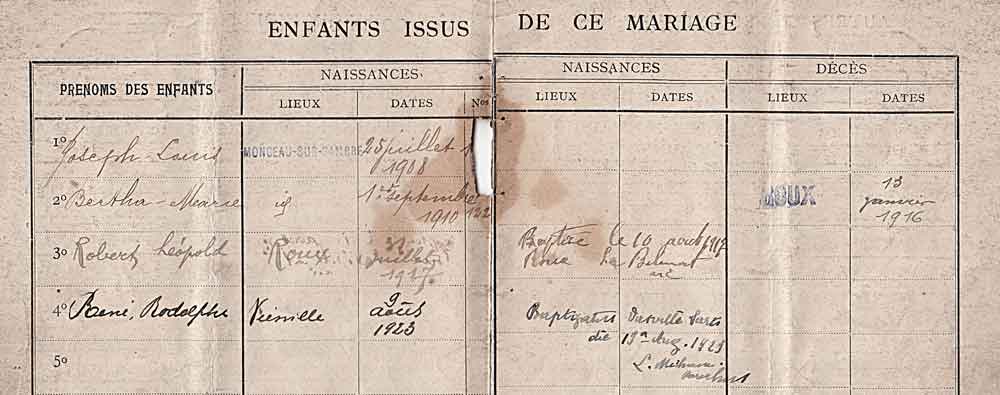 ENFANTS ISSUS DE CE MARIAGE
PRENOMS DES ENFANTS
NAISSANCES
LIEUX DATES Nos
NAISSANCES
LIEUX DATES
DÉCÈS
LIEUX DATES
1º Joseph-Louis MONCEAU-SUR-SAMBRE 25 juillet
1908
2º Bertha-Marie id 1er septembre
1910 122
ROUX 13
janvier
1916
3º Robert Léopold Roux
juillet
1917
le 10 août 1917
Roux
4º René, Rodolphe Viesville 9
août
1923
Baptizatus
die 19a Aug. 1923
5º